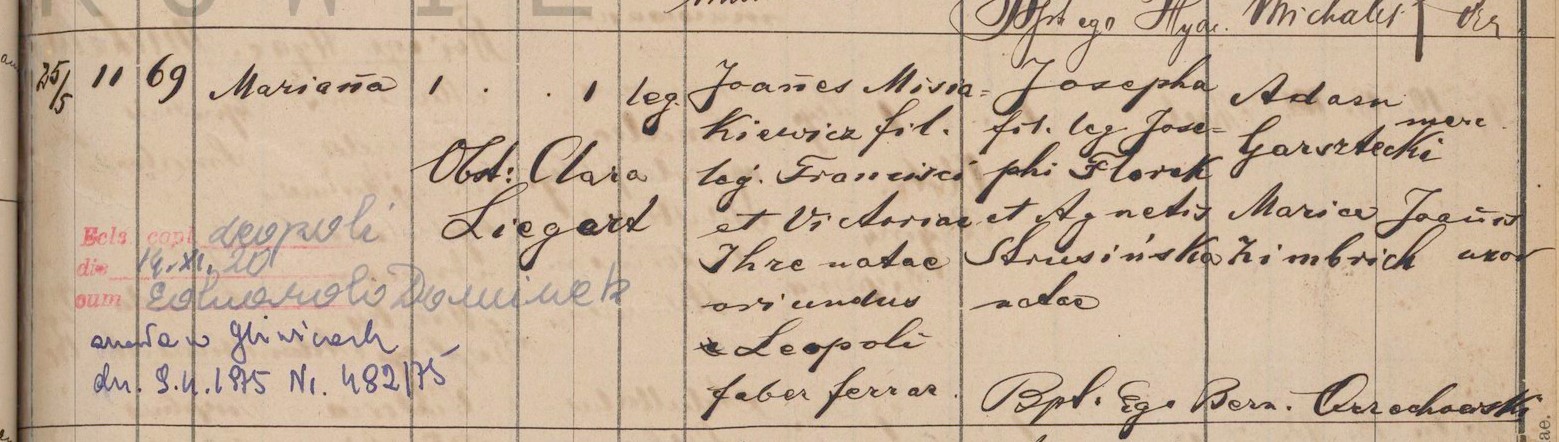 Bpt. ego Hyac. Michalis
25/5 11 69 Mariana 1 . . 1 leg.
Obst: Clara
Liegert
Joannes Misia=
kiewicz fil.
leg. Francisci
et Victoriae
Ihre natae
oriundus
e Leopoli
faber ferrar.
Josepha
fil. leg Jose=
phi Florek
et Agnetis
Strusińska
natae
Adam
merc.
Garsztecki
Maria Joannis
Zimbrich uxor
Bpt. Ego Bern. Orzechowski
Ecls. copl. Leopoli
die 14.XI.20
cum Eduardo Dominek
zmarła w Gliwicach
dn. 3.4.1975 Nr. 482/75
ae.